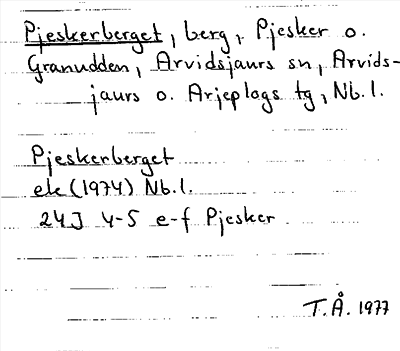 Pjeskerberget, berg, Pjesker o.
Granudden, Arvidsjaurs sn, Arvids-
jaurs o. Arjeplogs tg, Nb.l.
Pjeskerberget
ek (1974) Nb.l.
24J 4-5 e-f Pjesker
T.Å. 1977